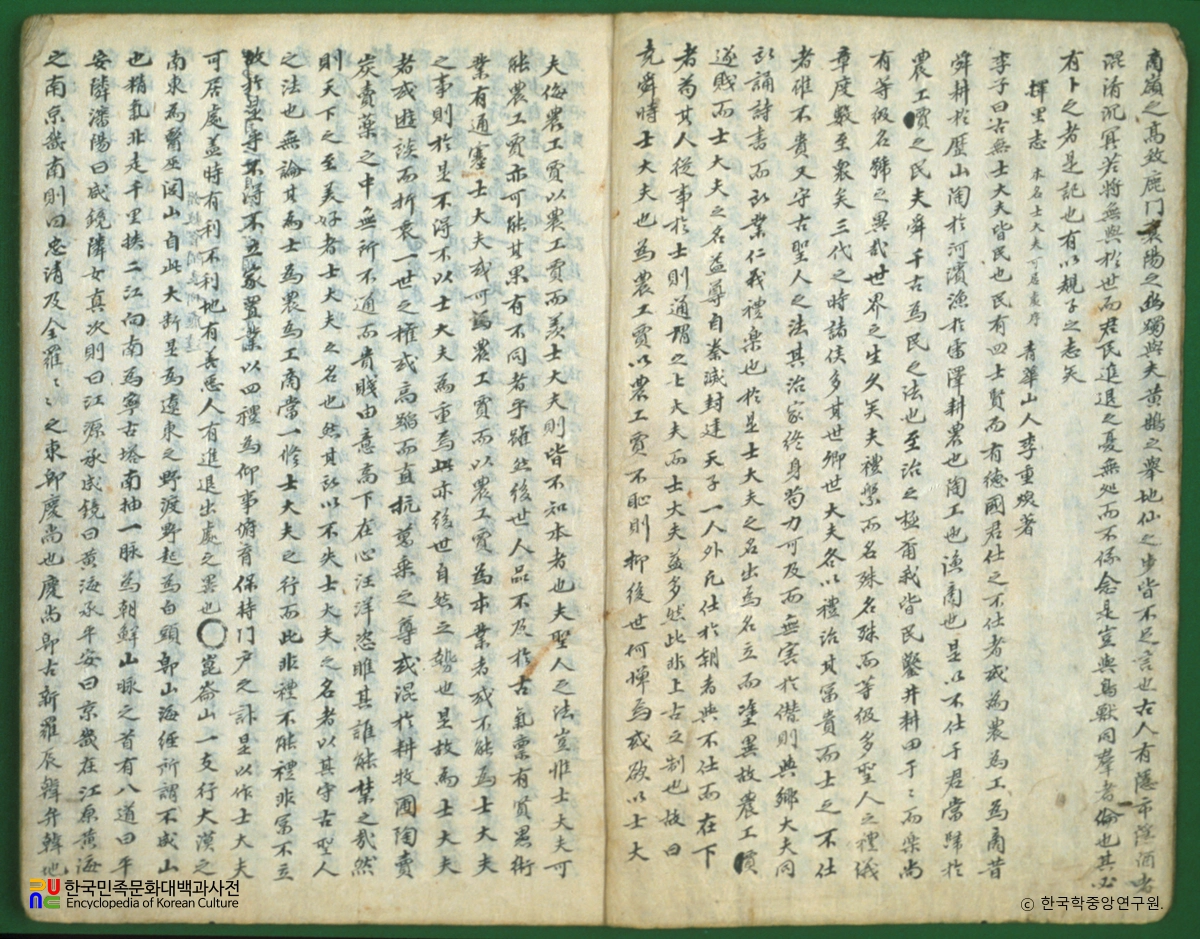 商嶺之高效鹿門襄陽之幽躅與夫黃鵠之擧地仙之步皆不足言也古人有隱市隱酒者
混淆沉冥若將無與於世而君民進退之憂無処而不係念是豈與鳥獸同羣者倫也其必
有卜之者是記也有以觀子之志矣
擇里志 本名士大夫可居處序 靑華山人李重煥著
李子曰古無士大夫皆民也民有四士賢而有德國君仕之不仕者或爲農爲工爲商昔
舜耕於歷山陶於河濱漁於雷澤耕農也陶工也漁商也是以不仕于君常歸於
農工賈之民夫舜千古爲民之法也至治之極爾我皆民鑿井耕田于〻而樂尚
有等級名號之異哉世界之生久矣夫禮繁而名殊名殊而等級多聖人之禮儀
章度數至衆矣三代之時諸侯多其世卿世大夫各以禮治其富貴而士之不仕
者雖不貴又守古聖人之法其治家終身苟力可及而無害於僭則與鄕大夫同
所誦詩書而所業仁義禮樂也於是士大夫之名出焉名立而塗異故農工賈
遂賤而士大夫之名益尊自秦滅封建天子一人外凡仕於朝者與不仕而在下
者苟其人從事於士則通謂之士大夫而士大夫益多然此非上古之制也故曰
堯舜時士大夫也爲農工賈以農工賈不恥則抑後世何憚焉或欲以士大
夫侮農工賈以農工賈而羨士大夫則皆不知本者也夫聖人之法豈惟士大夫可
能農工賈亦可能其果有不同者乎雖然後世人品不及於古氣稟有賢愚術
業有通塞士大夫或可爲農工賈而以農工賈爲本業者或不能爲士大夫
之事則於是不得不以士大夫爲重焉此亦後世自然之勢也是故爲士大夫
者或遊談而折衷一世之權或高蹈而直抗萬乘之尊或混於耕牧圃陶賣
炭賣藥之中無所不通而貴賤由意高下在心汪洋恣睢其誰能禁之哉然
則天下之至美好者士大夫之名也然其所以不失士大夫之名者以其守古聖人
之法也無論其爲士爲農爲工商常一修士大夫之行而此非禮不能禮非富不立
故於是乎不得不立家置業以四禮爲仰事俯育保持門戶之計是以作士大夫
可居處盖時有利不利地有善惡人有進退出處之異也〇崑崙山一支行大漠之
南東爲醫巫閭山自此大斷是爲遼東之野渡野起爲白頭卽山海經所謂不咸山
也精氣北走千里挾二江向南爲寧古塔南抽一脉爲朝鮮山脉之首有八道曰平
安隣瀋陽曰咸鏡隣女眞次則曰江源承咸鏡曰黃海承平安曰京畿在江原黃海
之南京畿南則曰忠淸及全羅〻〻之東卽慶尙也慶尙卽古新羅辰韓弁韓地
한국민족문화대백과사전
Encyclopedia of Korean Culture
ⓒ 한국학중앙연구원.